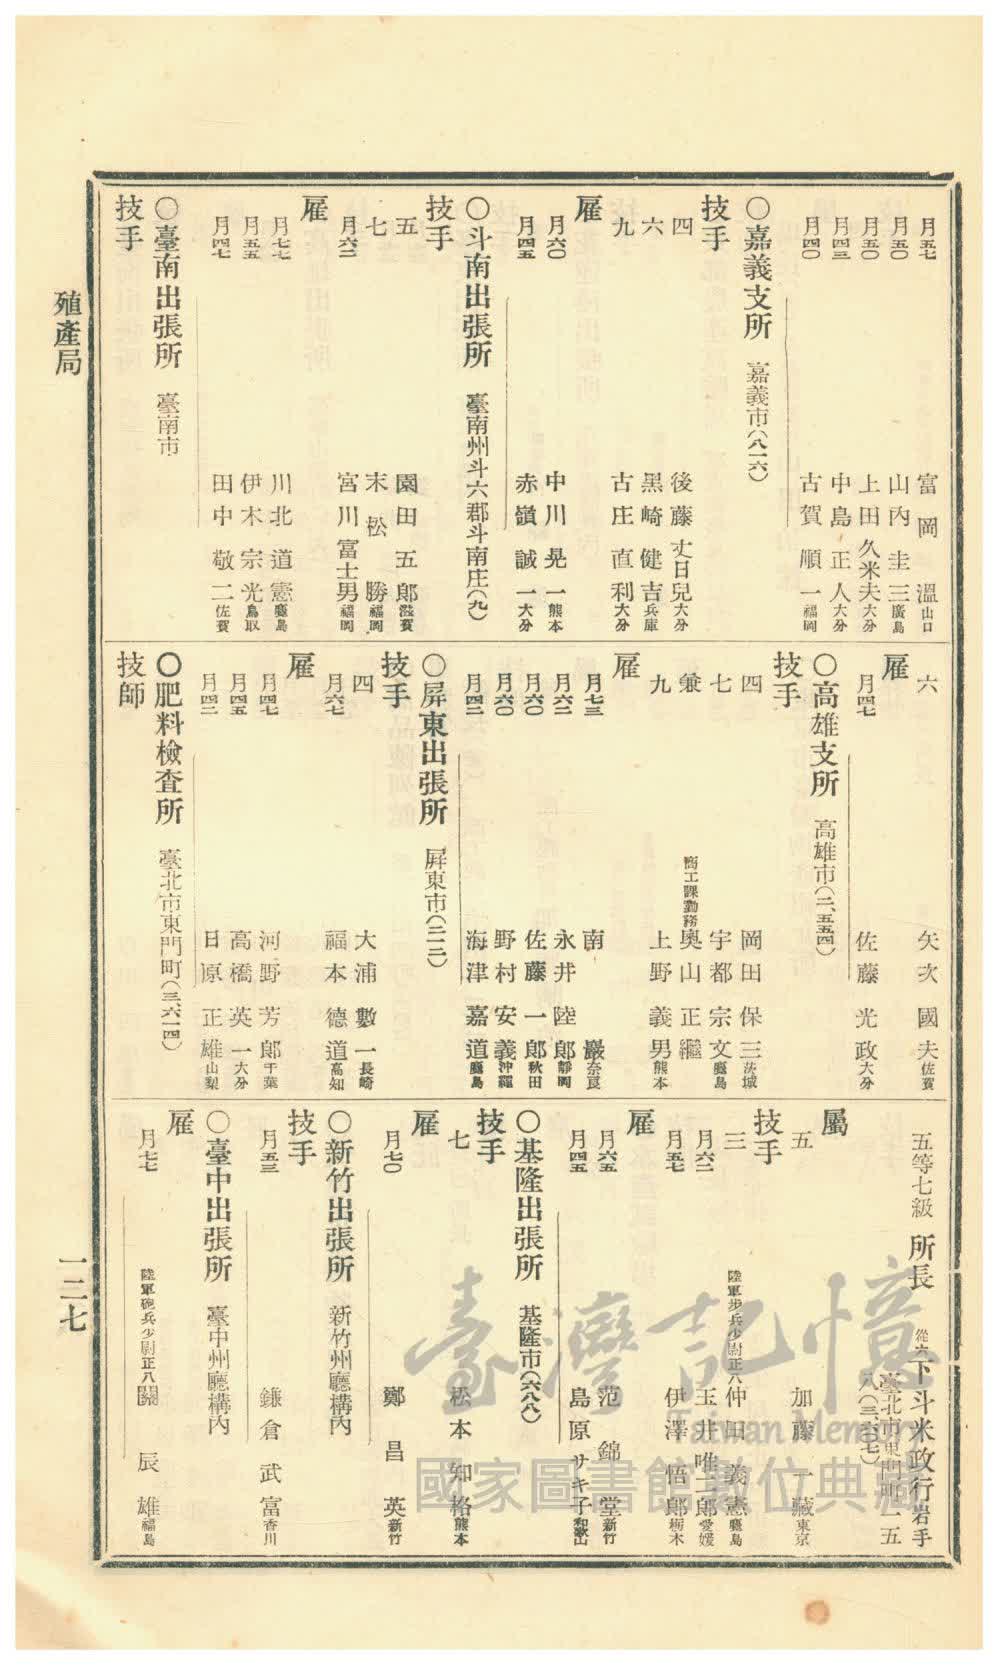 殖產局
一二七
月五七 富岡溫 山口
月五〇 山內圭三 廣島
月五〇 上田久米夫 大分
月四三 中島正人 大分
月四〇 古賀順一 福岡
〇嘉義支所 嘉義市(八一六)
技手
四 後藤丈日兒 大分
六 黑崎健吉 兵庫
九 古庄直利 大分
雇
月六〇 中川晃一 熊本
月四五 赤嶺誠一 大分
〇斗南出張所 臺南州斗六郡斗南庄(九)
技手
五 園田五郎 滋賀
七 末松勝 福岡
月六二 宮川富士男 福岡
雇
月七七 川北道憲 鹿島
月五五 伊木宗光 鳥取
月四七 田中敬二 佐賀
〇臺南出張所 臺南市
技手
六 矢次國夫 佐賀
雇
月四七 佐藤光政 大分
〇高雄支所 高雄市(二、五五四)
技手
四 岡田保三 茨城
七 宇都宗文 鹿島
兼 商工課勤務 奧山正繼
九 上野義男 熊本
雇
月七三 南巖 奈良
月六二 永井陸郎 靜岡
月六〇 佐藤一郎 秋田
月六〇 野村安義 沖繩
月四二 海津嘉道 鹿島
〇屏東出張所 屏東市(二二)
技手
四 大浦數一 長崎
月六七 福本德道 高知
雇
月四七 河野芳郎 千葉
月四五 高橋英一 大分
月四二 日原正雄 山梨
〇肥料檢查所 臺北市東門町(三六一四)
技師
五等七級 所長 從六 下斗米政行 岩手
臺北市東門町一五八(三六〇七)
屬
五 加藤一藏 東京
技手
三 陸軍步兵少尉正八 仲田義憲 鹿島
月六二 玉井唯二郎 愛媛
月五七 伊澤悟郎 栃木
雇
月六五 范錦堂 新竹
月四五 島原サキ子 和歌山
〇基隆出張所 基隆市(六八八)
技手
七 松本知格 熊本
雇
月七〇 鄭昌英 新竹
〇新竹出張所 新竹州廳構內
技手
月五三 鎌倉武富 香川
〇臺中出張所 臺中州廳構內
雇
月七七 陸軍砲兵少尉正八 關辰雄 福島
臺灣記憶
Taiwan Memory
國家圖書館數位典藏